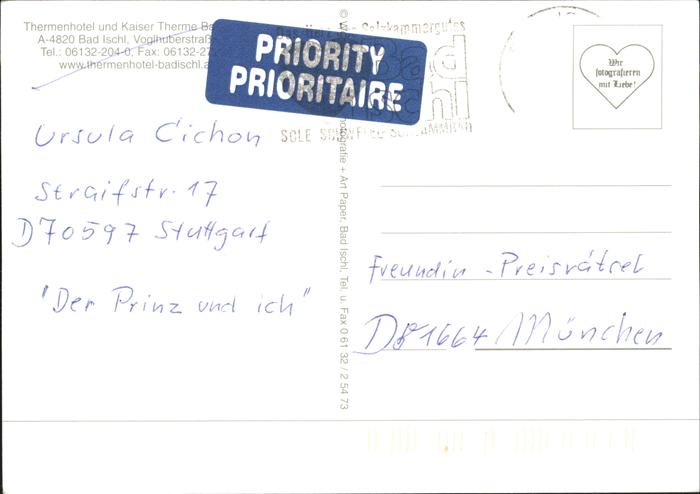 Thermenhotel und Kaiser Therme Ba
A-4820 Bad Ischl, Voglhuberstraß
Tel.: 06132-204-0, Fax: 06132-27
www.thermenhotel-badischl.a
PRIORITY
PRIORITAIRE
Salzkammergutes
Bad
Ischl
SOLE
Wir
fotografieren
mit Liebe!
Ursula Cichon
Straifstr. 17
D70597 Stuttgart
"Der Prinz und ich"
Freundin - Preisrätsel
D81664 München
otografie + Art Paper, Bad Ischl, Tel. u. Fax 0 61 32 / 2 54 73